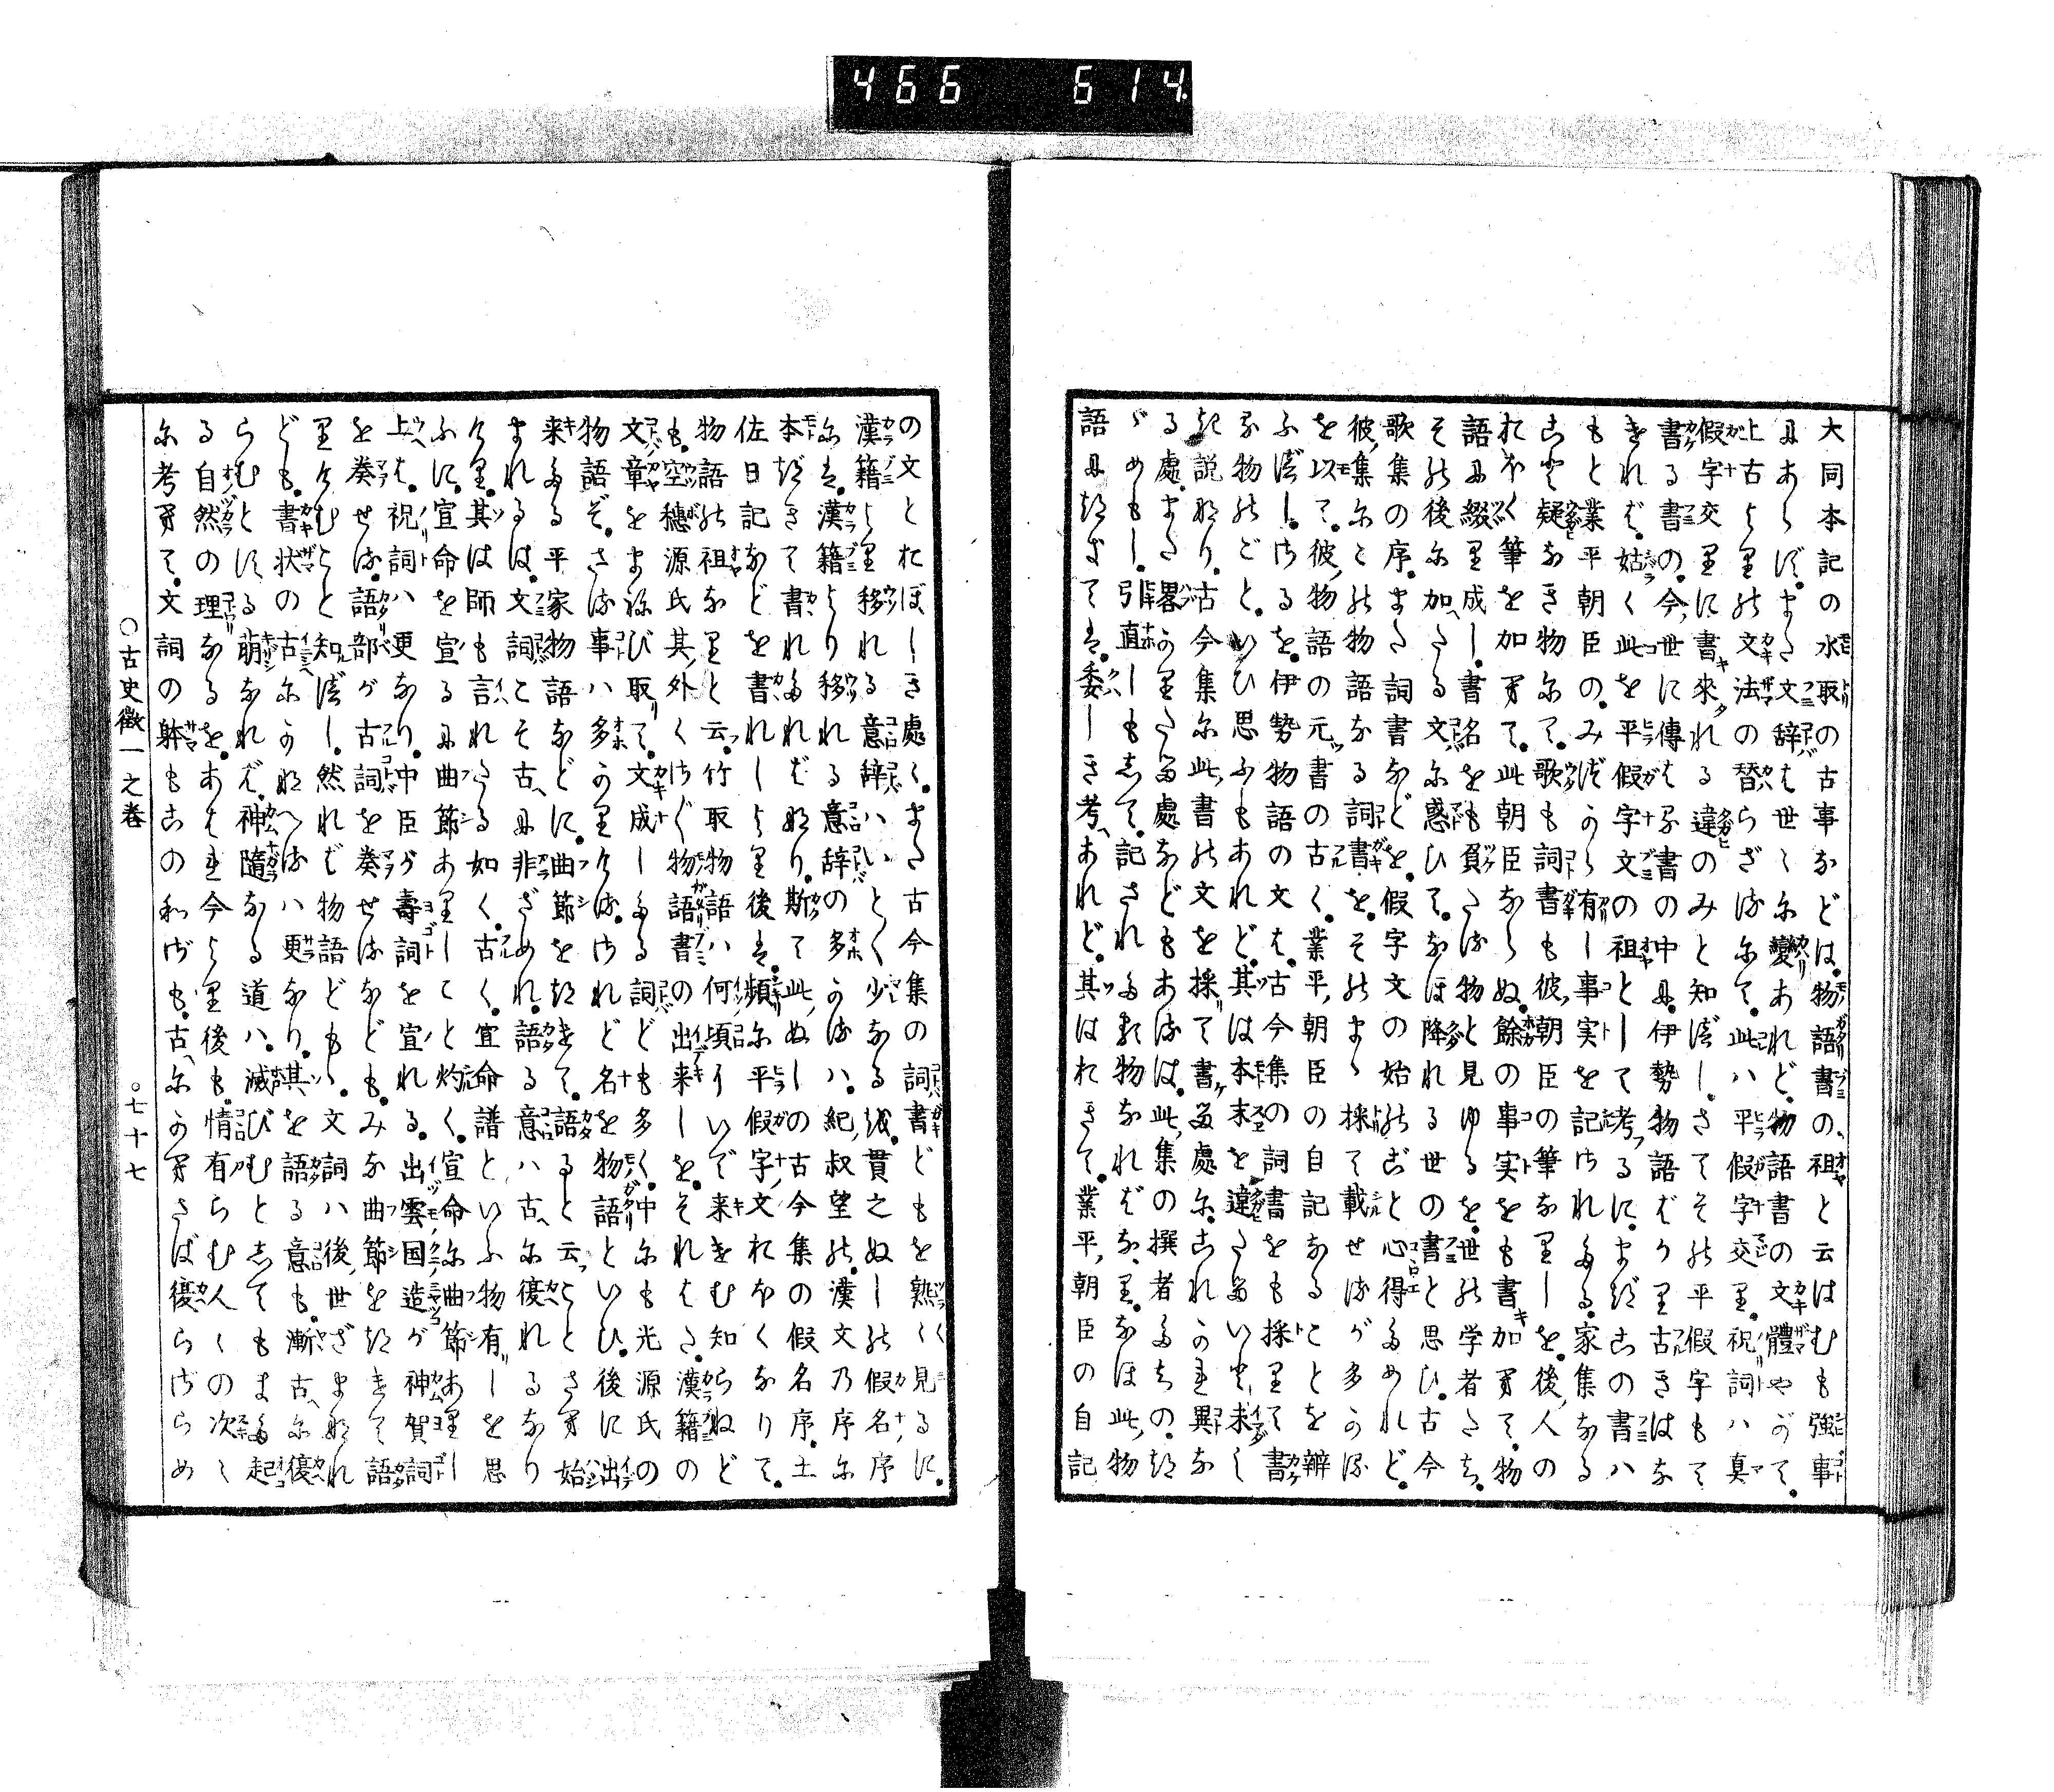 466 614
大同本記の水取の古事などは。物語書の、祖と云はむも強事
にあらず。また文辞は世々に變あれど。物語書の文體やがて。
上古よりの文法の替らざるにて。此ハ平假字交り。祝詞ハ真
假字交りに書來れる違のみと知べし。さてその平假字もて
書る書の。今世に傳はる書の中に。伊勢物語ばかり古きはな
きれば。姑く此を平假字文の祖として考ふるに。まづこの書ハ
もと業平朝臣の。みづから有し事実を記されたる。家集なる
こと疑なき物にて。歌も詞書も彼朝臣の筆なりしを。後人の
おほく筆を加へて。此朝臣ならぬ。餘の事実をも書加へて。物
語に綴り成し。書名をも負たる物と見ゆるを。世の学者たち。
その後に加へたる文に惑ひて。なほ降れる世の書と思ひ。古今
歌集の序。また詞書などを。假字文の始のごと心得ためれど。
彼集にとの物語なる詞書を。そのまゝ採て載せるが多かる
を以て。彼物語の元書の古く。業平朝臣の自記なることを辨
ふべし。さるを。伊勢物語の文は。古今集の詞書をも採りて書
る物のごと。いひ思ふもあれど。其は本末を違たるいと未しき
説なり。古今集に此書の文を採て書る處に。これかれと異な
る處。また畧かりたる處などもあるは。此集の撰者たちの。つ
ゞめもし。引直しもして。記されたる物なればなり。なほ此物
語につきては。委しき考あれど。其はおきて。業平朝臣の自記
の文とおぼしき處く。また古今集の詞書どもを熟〱見るに。
漢籍より移れる意辞ハいとく少なるを。貫之ぬしの假名序
には。漢籍より移れる意辞の多かるハ。紀叔望の。漢文乃序に
本づきて書れたればなり。斯て此ぬしの古今集の假名序。土
佐日記などを書れしより後は。頻に平假字文おほくなりて。
物語の祖なりと云。竹取物語ハ何頃いで来きむ知らねど
も。空穗源氏其外くさ〲物語書の出来しを。それはた。漢籍の
文章をまねび取て。文成したる詞ども多く。中にも光源氏の
物語ぞ。さる事ハ多かりける。されど名を物語といひ。後に出
来たる平家物語などに。曲節をつきて。語ると云ことさへ始
まれるは。文詞こそ古に非ざめれ。語る意ハ古に復れるなり
けり。其は師も言れたる如く。古く。宣命譜といふ物有しを思
ふに。宣命を宣るに曲節ありしこと灼く。宣命に曲節ありし
上は。祝詞ハ更なり。中臣が壽詞を宣れる。出雲国造が神賀詞
を奏せる。語部が古詞を奏せるなども。みな曲節をつきて語
りけむことと知べし。然れば物語どもゝ。文詞ハ後世ざまなれ
ども。書状の古にかなへるハ更なり。其を語る意も。漸古に復
らむとする萌なれば。神隨なる道ハ。滅びむとしてもまた起
る自然の理なるを。あはれ今より後も。情有らむ人〱の次〱
に考へて。文詞の躰もこの和ざも。古にかへさば復らざらめ
○古史徴一之卷 ○七十七